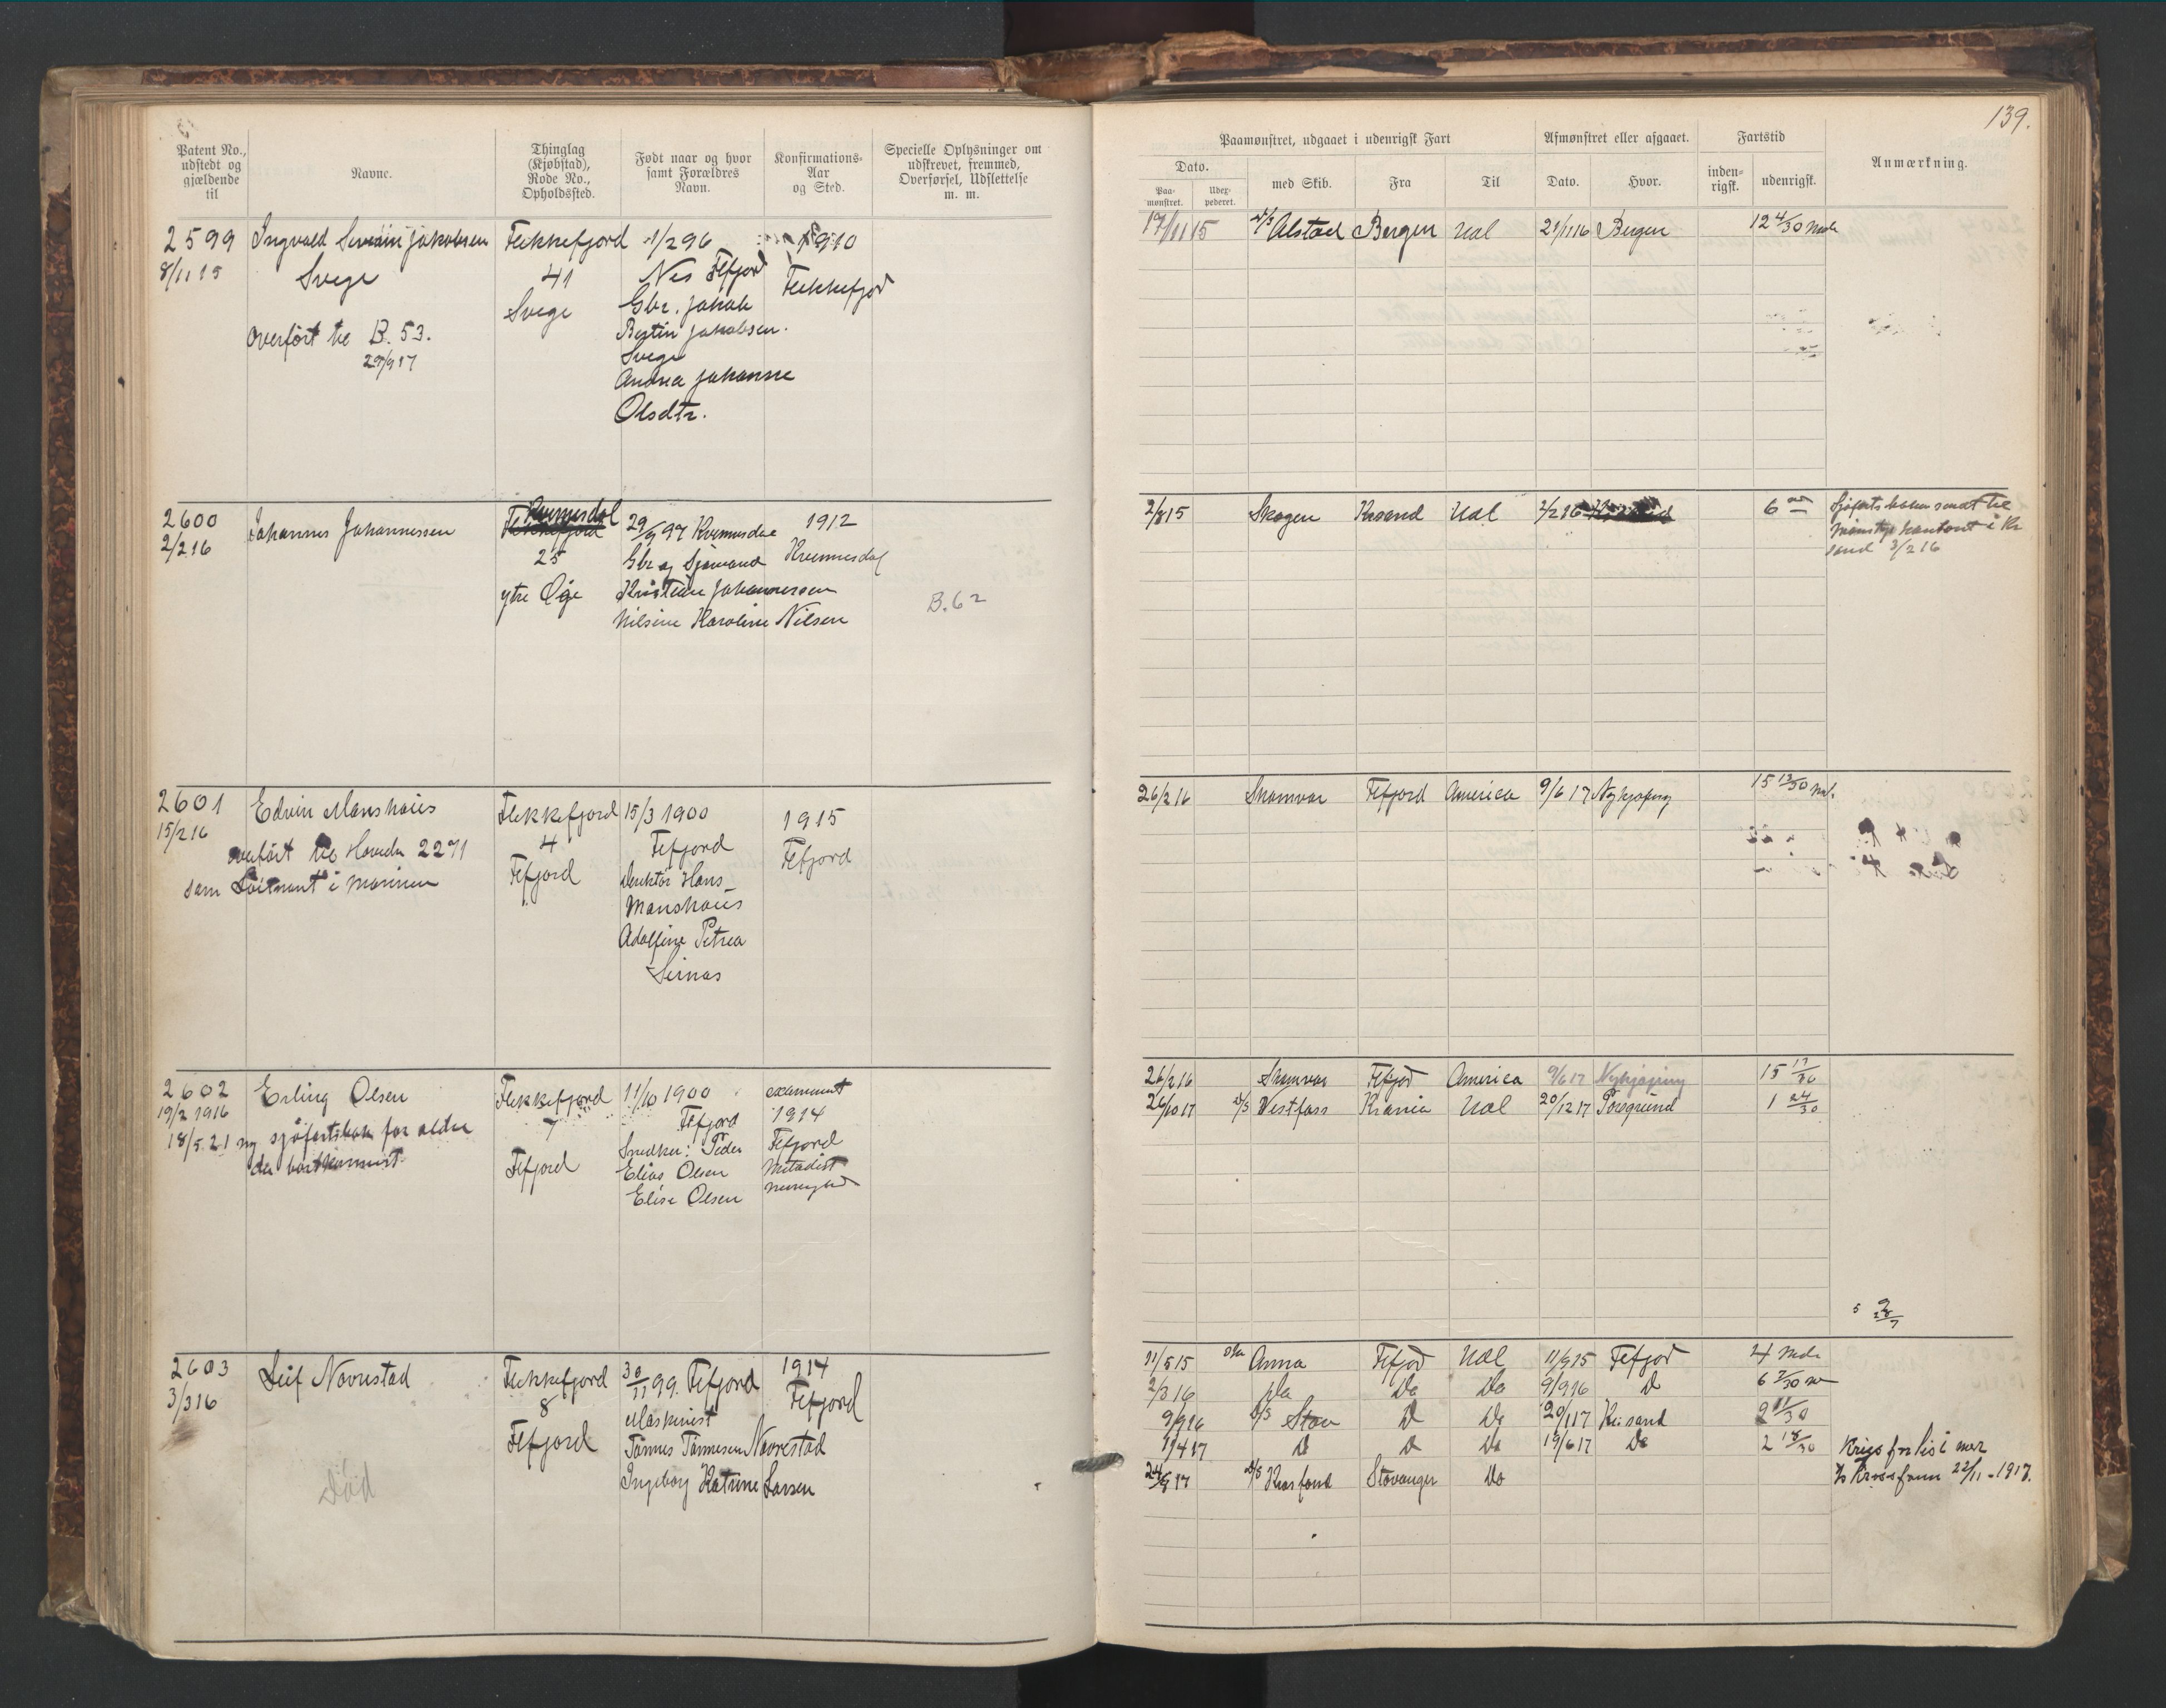 139.
Patent No., udstedt og gjældende til
Navne.
Thinglag (Kjøbstad), Rode No., Opholdssted.
Født naar og hvor samt Forældres Navn.
Konfirmations-Aar og Sted.
Specielle Oplysninger om udskrevet, fremmed, Overførsel, Udslettelse m. m.
Paamønstret, udgaaet i udenrigsk Fart
Afmønstret eller afgaaet.
Fartstid
Anmærkning.
Dato.
med Skib.
Fra
Til
Dato.
Hvor.
inden-rigsk.
udenrigsk.
Paa-mønstret.
Uder-pederet.
2599
8/11 15
Ingvald Severin Jakobsen
Svege
overført til B. 53.
Flekkefjord
41
Svege
1/2 96
Nes Ffjord
Gbr. Jakob
Bertin Jakobsen.
Svege
Andrea Johanne
Olsdtr.
1910
Flekkefjord
17/11 15 Alstad Bergen Udl 21/11 16 Bergen 12 4/30 mdr
2600
2/2 16
Johannes Johannessen
Kvinesdal
25
ytre Øie
29/9 97 Kvinesdal
Gbr og Sjømand
Kristian Johannessen
Nilsine Karoline Nilsen
1912
Kvinesdal
B. 62
2/8 15 Skogen Krsand Udl 2/2 16
6
Sjøfartsboken sendt til
mønstr kontoret i Kr
sand 3/2 16
2601
15/2 16
Edvin Manshaus
overført til Hovedr 2271
som Løitnant i marinen
Flekkefjord
4
Fefjord
15/3 1900
Fefjord
Direktør Hans
Manshaus
Adolfine Petrea
1915
Fefjord
26/2 16 Skomvær Fefjord America 9/6 17 Nykjøping 15 13/30 md.
2602
19/2 1916
18/5 21 ny sjøfartsbok for ældre
der bortkommet
Erling Olsen
Flekkefjord
7
Fefjord
11/10 1900
Fefjord
Snedker: Peder
Elias Olsen
Elise Olsen
1914
Fefjord
Metodist
menighed
26/2 16 Skomvær Fefjord America 9/6 17 Nykjøping 15 13/30
26/10 17 D/S Vestfoss Krania Udl 20/12 17 Porsgrund 1 24/30
2603
3/3 16
Leif Navrestad
Død
Flekkefjord
8
Fefjord
30/11 99. Fefjord
Maskinist
Tønnes Tønnesen Navrestad
Ingeborg Katrine Larsen
1914
Fefjord
11/5 15 Anna Fefjord Udl 11/9 15 Fefjord 4 mdr
2/3 16 Da Do Do 9/9 16 D 6 7/30
9/9 16 D/S D Do 20/1 17 Kr.sand 2 11/30
1/4 17 D D Do 19/6 17 Do 2 18/30
24/8 17 D/S Stavanger Do
Krigsforlis i mar
22/11 - 1917.